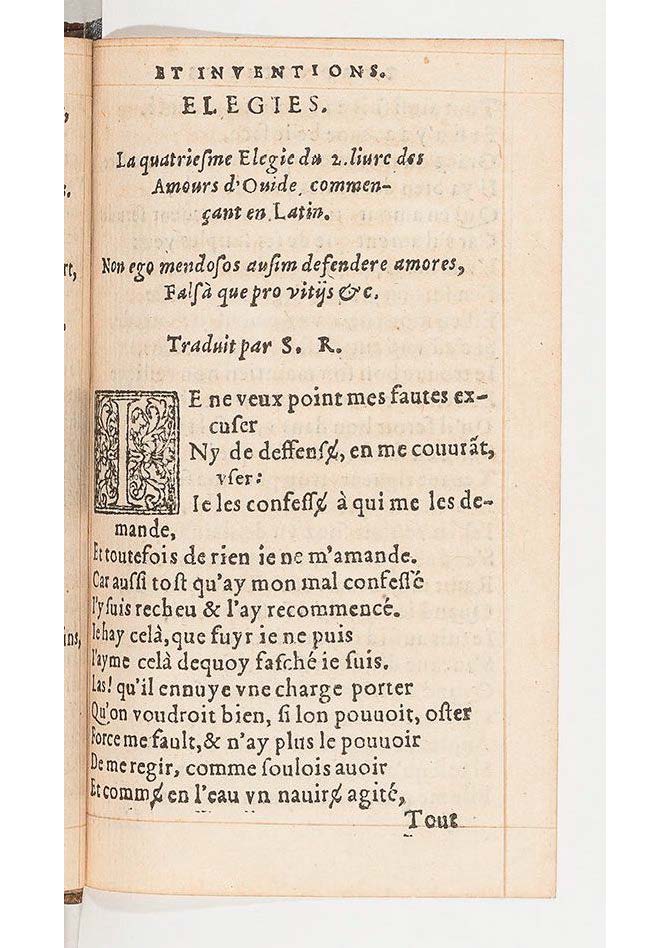 ET INVENTIONS.
ELEGIES.
La quatriesme Elegie du 2. liure des
Amours d'Ouide, commen-
çant en Latin.
Non ego mendosos ausim defendere amores,
Falsà que pro vitijs &c.
Traduit par S. R.
IE ne veux point mes fautes ex-
cuser
Ny de deffense̸, en me couurãt,
vser:
Ie les confesse̸ à qui me les de-
mande,
Et toutefois de rien ie ne m'amande.
Car aussi tost qu'ay mon mal confessé
I'y suis recheu & l'ay recommencé.
Ie hay celà, que fuyr ie ne puis
I'ayme celà dequoy fasché ie suis.
Las! qu'il ennuye vne charge porter
Qu'on voudroit bien, si lon pouuoit, oster
Force me fault, & n'ay plus le pouuoir
De me regir, comme soulois auoir
Et comme̸ en l'eau vn nauire̸ agité,
Tout